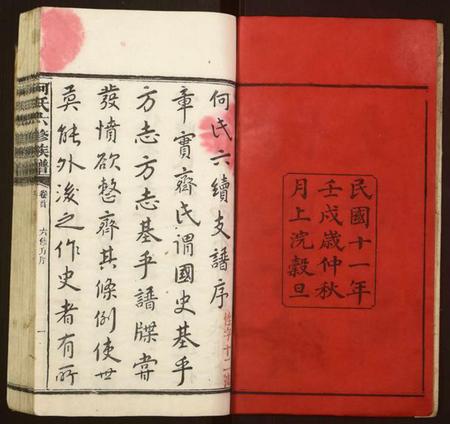 民國十一年
壬戌歲仲秋
月上浣穀旦
何氏六續支譜序
章實齋氏謂國史基乎
方志方志基乎譜牒嘗
發憤欲整齊其條例使世
莫能外後之作史者有所
何氏六修族譜
卷首
一